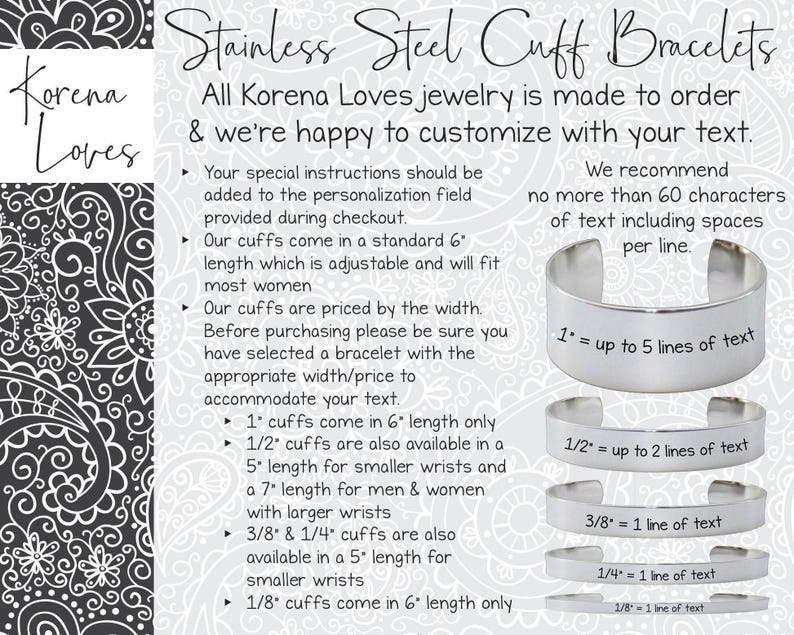 Stainless Steel Cuff Bracelets
Korena
Loves
All Korena Loves jewelry is made to order
& we're happy to customize with your text.
‣ Your special instructions should be
added to the personalization field
provided during checkout.
‣ Our cuffs come in a standard 6"
length which is adjustable and will fit
most women
‣ Our cuffs are priced by the width.
Before purchasing please be sure you
have selected a bracelet with the
appropriate width/price to
accommodate your text.
‣ 1" cuffs come in 6" length only
‣ 1/2" cuffs are also available in a
5" length for smaller wrists and
a 7" length for men & women
with larger wrists
‣ 3/8" & 1/4" cuffs are also
available in a 5" length for
smaller wrists
‣ 1/8" cuffs come in 6" length only
We recommend
no more than 60 characters
of text including spaces
per line.
1" = up to 5 lines of text
1/2" = up to 2 lines of text
3/8" = 1 line of text
1/4" = 1 line of text
1/8" = 1 line of text